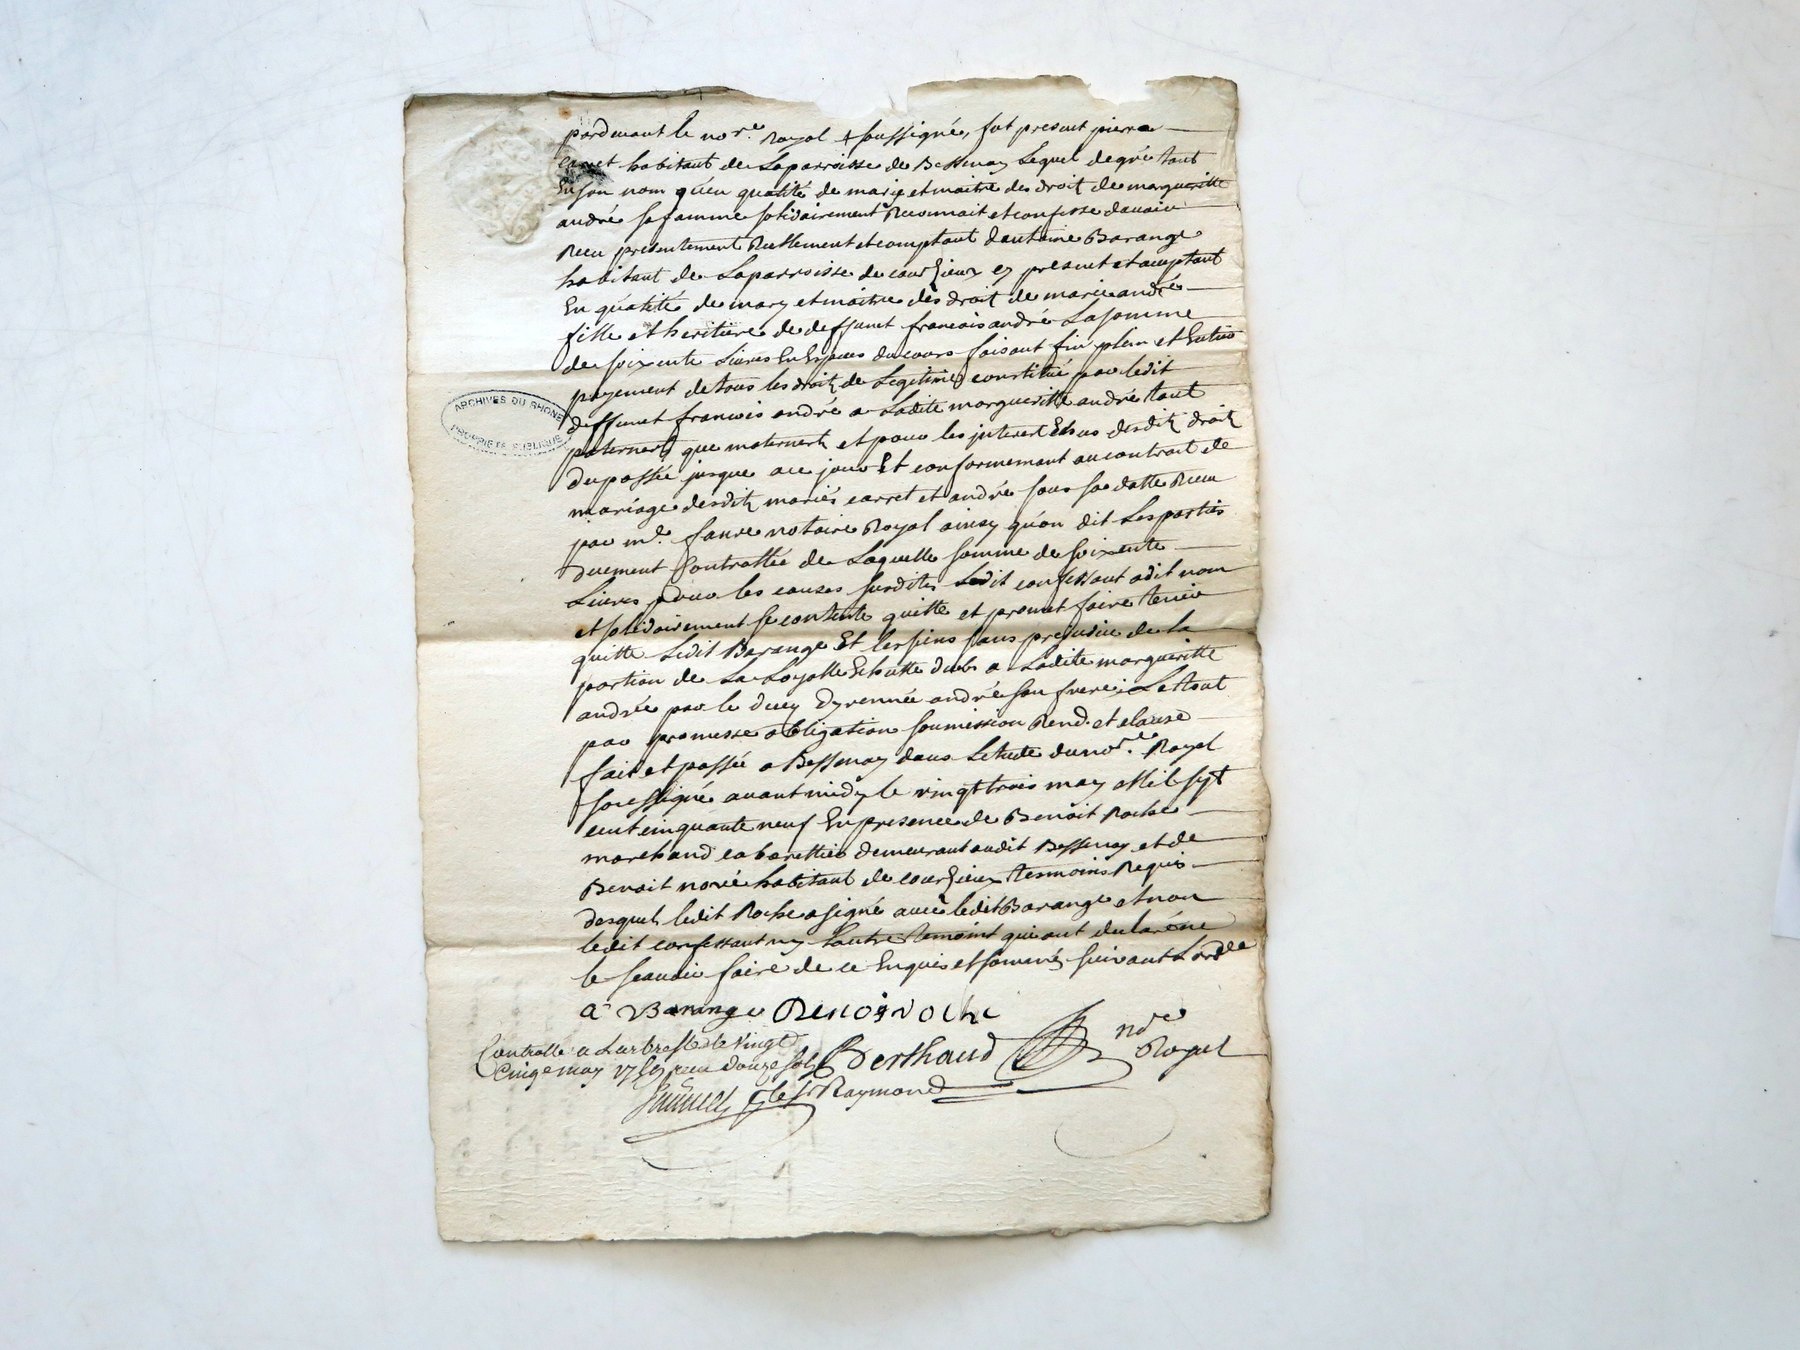 pardevant le nore. Royal soussigné, fut present pierre
carret habitant de Laparroisse de Bessenay Lequel degré tant
En son nom qu'en qualité de mary et maitre des droit de margueritte
andré sa famme solidairement Reconnait et confesse d'avoir
Receu presentement Réellement et comptant d'antoine Barange
habitant de Laparroisse de courzieux cy present et acceptant
En qualité de mary et maitre des droit de marie andré
fille et heritiere de deffunct francois andré La somme
de soixente Livres En Especes du cours faisant fin plein et Entier
payement de tous les droitz de Legitime constitué par ledit
deffunct francois andré a Ladite margueritte andré tant
paternerlz que maternerlz et pour les jnterert desditz droitz
du passée jusque a ce jour Et conformemant au contrait de
mariage desditz mariés carret et andré sous sa datte Receu
par me. faure notaire Royal ainsy qu'on dit Les parties
duement Controllée de Laquelle somme de soixente
Livres pour les causes susdites Ledit confessant adit nom
et solidairement se contente quitte et promet faire tenir
quitte Ledit Barange Et les siens sans prejudice de la
portion de La Loyalle Echutte dub a Ladite margueritte
andrée par le decy d'yrennée andré son frere; Le tout
par promesse obligation soumission Rend. et clause
fait et passée a Bessenay dans Letude du nore. Royal
soussigné avant midy le vingt trois may Mil sept
cent cinquante neuf En presence de Benoit Roche
marchand cabarettier demeurant audit Bessenay et de
Benoit noué habitant de courzieux temoins Requis
desquelz ledit Roche a signé avec ledit Barange et non
ledit confessant ny L'autre temoint qui ont declaré ne
le scavoir faire de ce Enquis et sommés suivant L'ordce
a Barange Benoi Roche
Berthaud nore Royal
Controllé a Larbresle le vingt
Cinq may 1759 receu douze sols
le sr Raymond
ARCHIVES DU RHONE
PROPRIETE PUBLIQUE